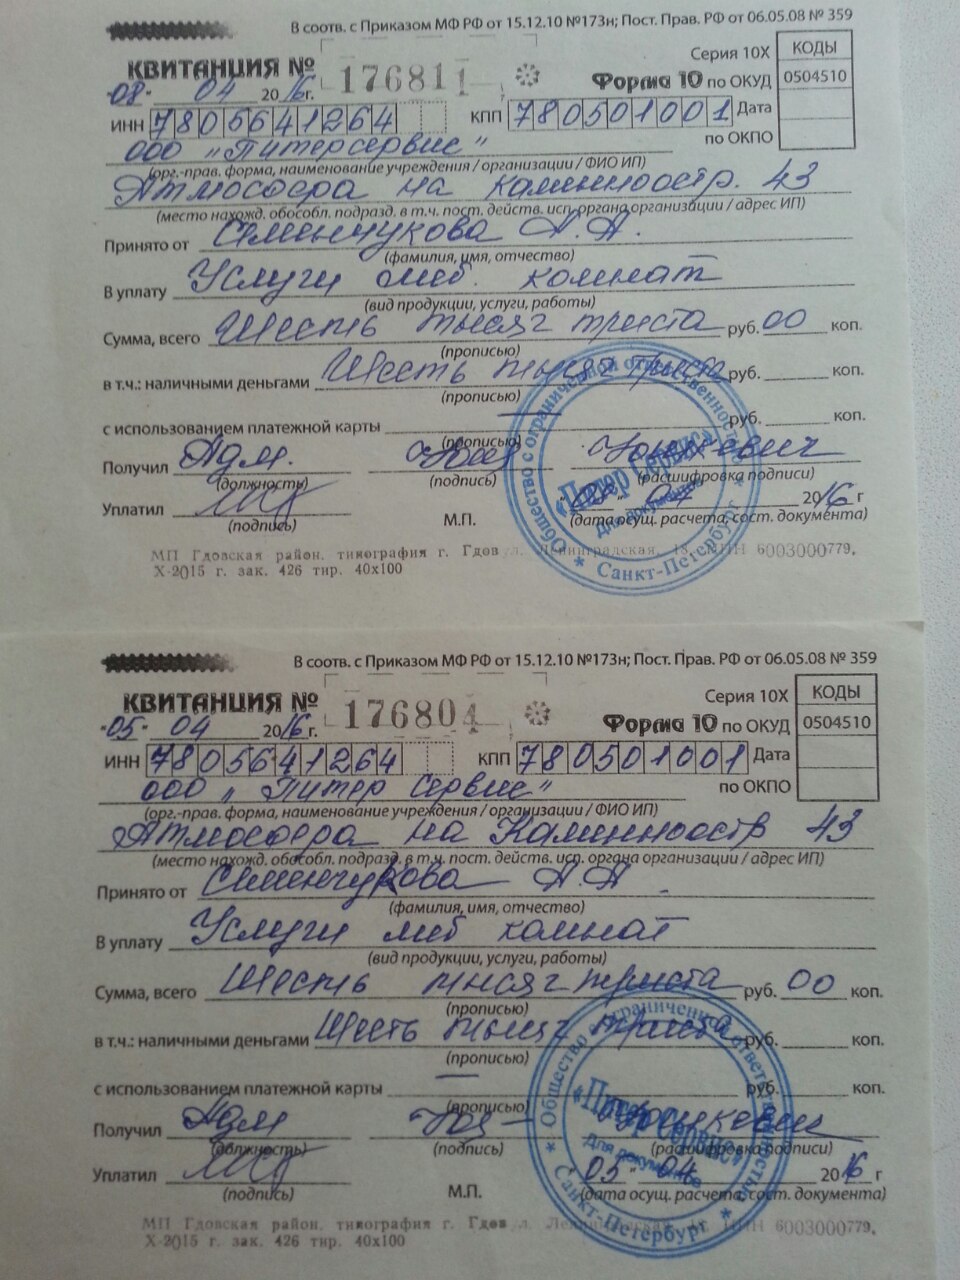 В соотв. с Приказом МФ РФ от 15.12.10 №173н; Пост. Прав. РФ от 06.05.08 № 359
КВИТАНЦИЯ № 176811 Серия 10Х КОДЫ
"08" 04 2016 г. Форма 10 по ОКУД 0504510
ИНН 7805641264 КПП 780501001 Дата
ООО "Питерсервис" по ОКПО
(орг.-прав. форма, наименование учреждения / организации / ФИО ИП)
Атмосфера на Каменноостр. 43
(место нахожд. обособл. подразд. в т.ч. пост. действ. исп. органа организации / адрес ИП)
Принято от Семенчукова А.А.
(фамилия, имя, отчество)
В уплату Услуги меб. комнат
(вид продукции, услуги, работы)
Сумма, всего Шесть тысяч триста руб. 00 коп.
(прописью)
в т.ч.: наличными деньгами Шесть тысяч триста руб. коп.
(прописью)
с использованием платежной карты руб. коп.
(прописью)
Получил Адм.
(должность) (подпись) (расшифровка подписи)
Уплатил М.П. 04 2016 г
(подпись) (дата осущ. расчета, сост. документа)
Общество с ограниченной ответственностью
«Питер Сервис»
Для документов
* Санкт-Петербург *
МП Гдовская район. типография г. Гдов ул. Ленинградская, 18, ИНН 6003000779,
Х-2015 г. зак. 426 тир. 40х100
В соотв. с Приказом МФ РФ от 15.12.10 №173н; Пост. Прав. РФ от 06.05.08 № 359
КВИТАНЦИЯ № 176804 Серия 10Х КОДЫ
"05" 04 2016 г. Форма 10 по ОКУД 0504510
ИНН 7805641264 КПП 780501001 Дата
ООО "Питер Сервис" по ОКПО
(орг.-прав. форма, наименование учреждения / организации / ФИО ИП)
Атмосфера на Каменноостр 43
(место нахожд. обособл. подразд. в т.ч. пост. действ. исп. органа организации / адрес ИП)
Принято от Семенчукова А.А.
(фамилия, имя, отчество)
В уплату Услуги меб комнат
(вид продукции, услуги, работы)
Сумма, всего Шесть тысяч триста руб. 00 коп.
(прописью)
в т.ч.: наличными деньгами Шесть тысяч триста руб. коп.
(прописью)
с использованием платежной карты руб. коп.
(прописью)
Получил Адм
(должность) (подпись) (расшифровка подписи)
Уплатил М.П. 05 04 2016 г
(подпись) (дата осущ. расчета, сост. документа)
Общество с ограниченной ответственностью
«Питер Сервис»
Для документов
* Санкт-Петербург *
МП Гдовская район. типография г. Гдов ИНН 6003000779,
Х-2015 г. зак. 426 тир. 40х100